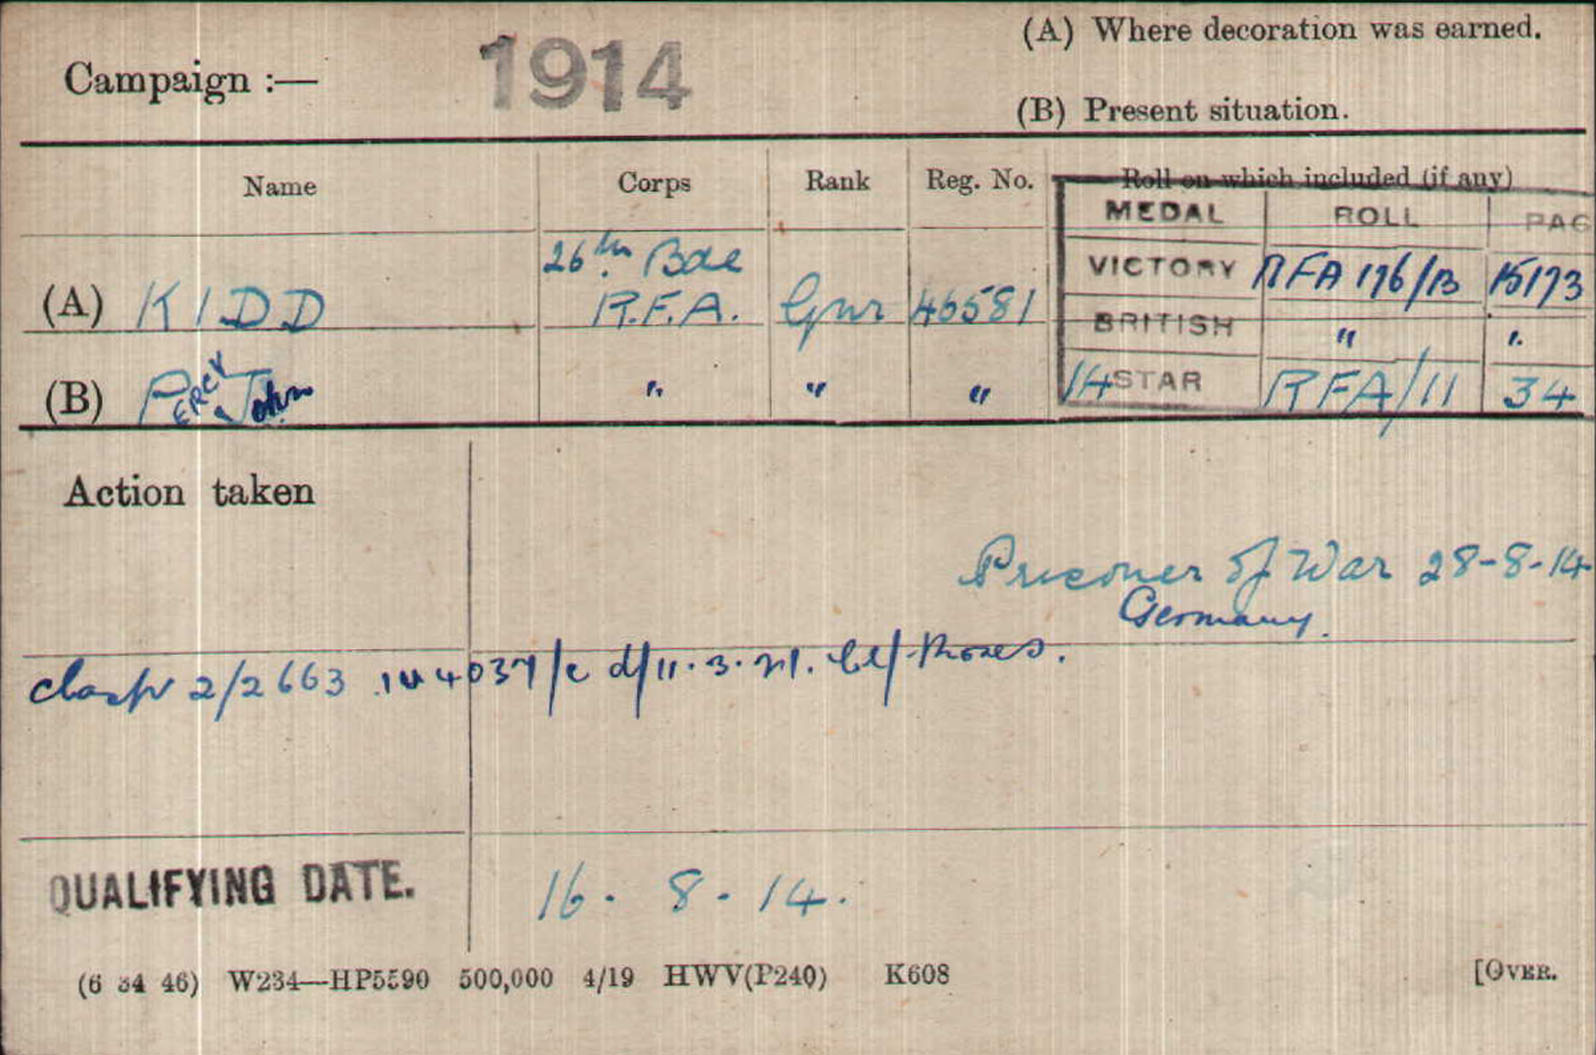 Campaign :— 1914
(A) Where decoration was earned.
(B) Present situation.
Name Corps Rank Reg. No. Roll on which included (if any)
MEDAL ROLL PAG
26th Bde
VICTORY RFA 176/B 15173
(A) KIDD R.F.A. Gnr 46581
BRITISH " "
(B) PERCY John " " " 14 STAR RFA/11 34
Action taken
Prisoner of War 28-8-14
Germany.
Clasp 2/2663 4037/c d/11.3.21.
QUALIFYING DATE. 16. 8. 14.
(6 34 46) W234—HP5590 500,000 4/19 HWV(P240) K608 [OVER.